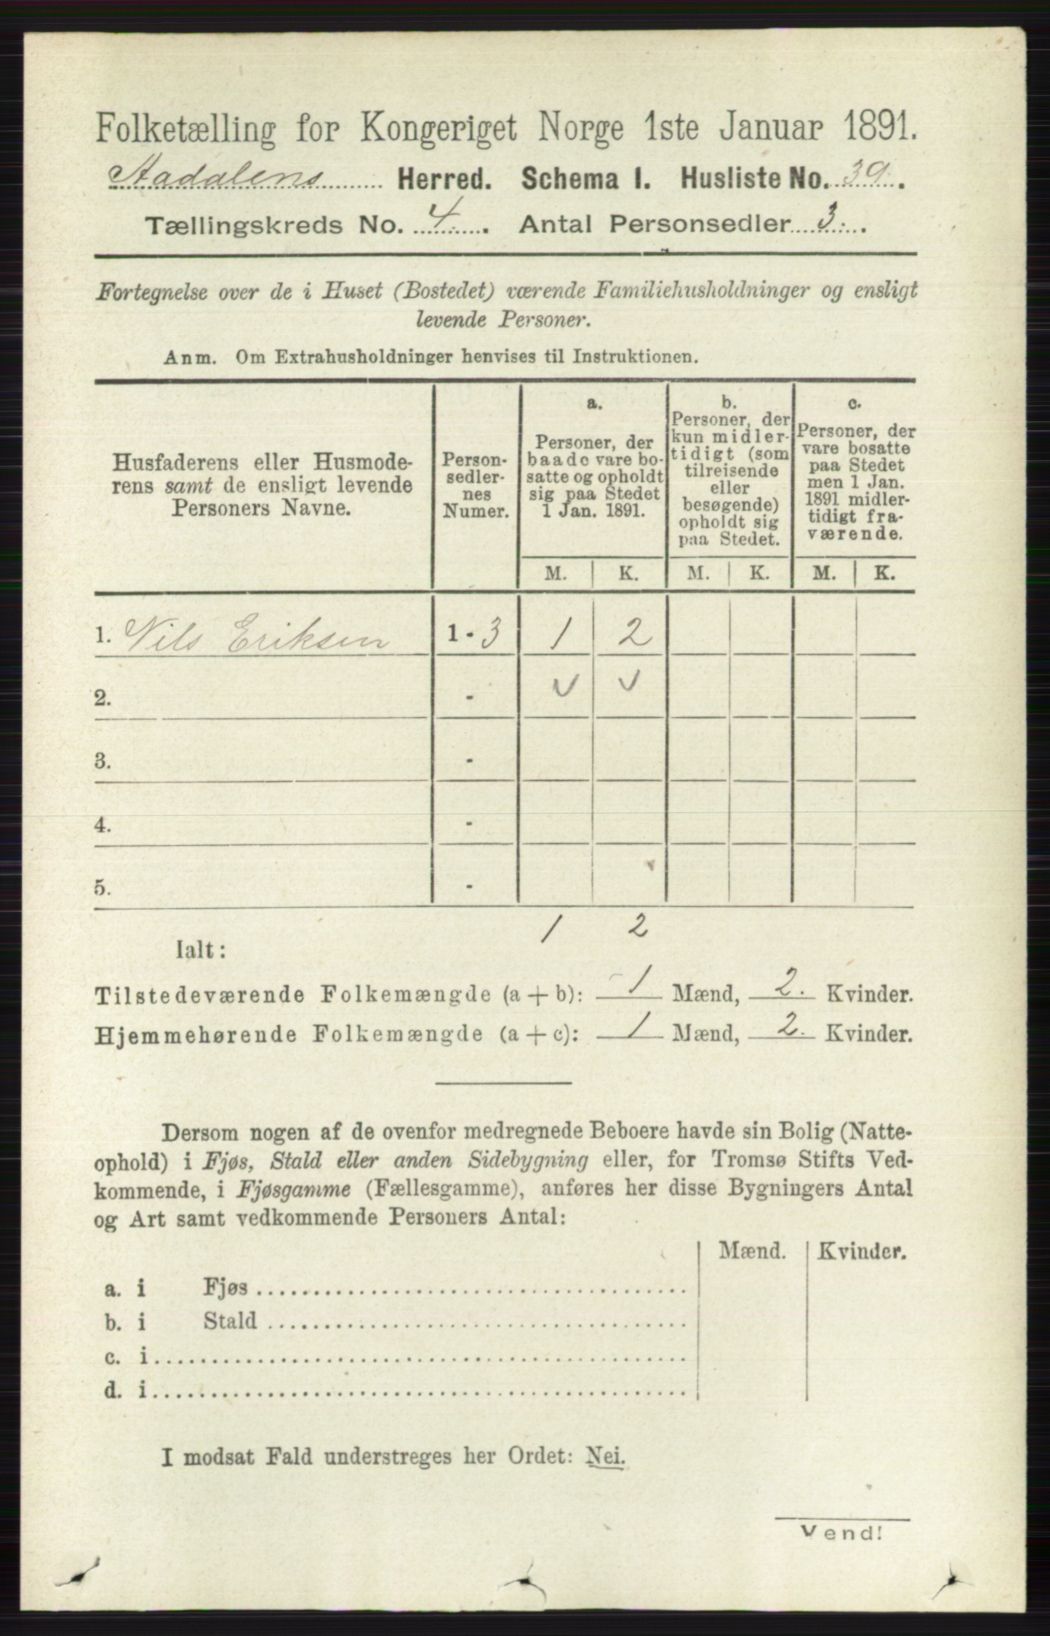 Folketælling for Kongeriget Norge 1ste Januar 1891.
Aadalens Herred. Schema I. Husliste No. 39.
Tællingskreds No. 4. Antal Personsedler 3.
Fortegnelse over de i Huset (Bostedet) værende Familiehusholdninger og ensligt
levende Personer.
Anm. Om Extrahusholdninger henvises til Instruktionen.
Husfaderens eller Husmode-
rens samt de ensligt levende
Personers Navne.
Person-
sedler-
nes
Numer.
a.
Personer, der
baade vare bo-
satte og opholdt
sig paa Stedet
1 Jan. 1891.
b.
Personer, der
kun midler-
tidigt (som
tilreisende
eller
besøgende)
opholdt sig
paa Stedet.
c.
Personer, der
vare bosatte
paa Stedet
men 1 Jan.
1891 midler-
tidigt fra-
værende.
M. K. M. K. M. K.
1. Nils Eriksen 1 - 3 1 2
2. - v v
3. -
4. -
5. -
1 2
Ialt:
Tilstedeværende Folkemængde (a + b): 1 Mænd, 2. Kvinder.
Hjemmehørende Folkemængde (a + c): 1 Mænd, 2. Kvinder.
Dersom nogen af de ovenfor medregnede Beboere havde sin Bolig (Natte-
ophold) i Fjøs, Stald eller anden Sidebygning eller, for Tromsø Stifts Ved-
kommende, i Fjøsgamme (Fællesgamme), anføres her disse Bygningers Antal
og Art samt vedkommende Personers Antal:
Mænd. Kvinder.
a. i Fjøs
b. i Stald
c. i
d. i
I modsat Fald understreges her Ordet: Nei.
Vend!